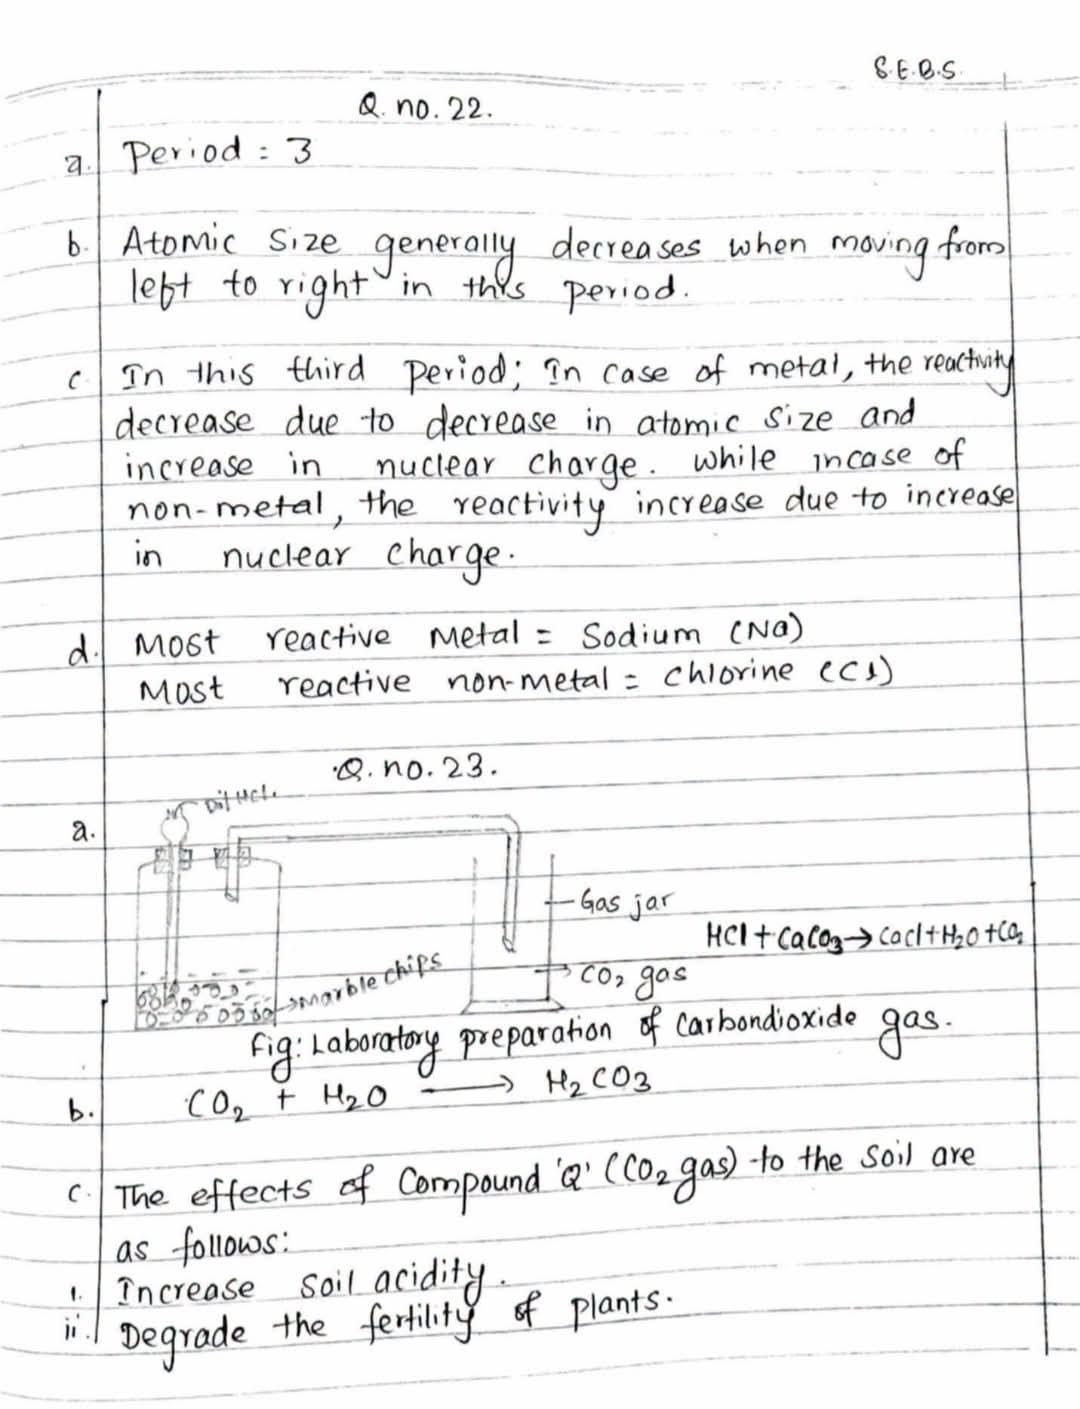 S.E.B.S.
Q. no. 22.
a. Period = 3
b. Atomic size generally decreases when moving from
left to right in this period.
c. In this third period; In case of metal, the reactivity
decrease due to decrease in atomic size and
increase in nuclear charge. While incase of
non-metal, the reactivity increase due to increase
in nuclear charge.
d. Most reactive Metal = Sodium (Na)
Most reactive non-metal = Chlorine (Cl)
Q. no. 23.
Dil HCl.
a.
Gas jar
HCl + CaCO3 → CaCl + H2O + CO2
CO2 gas
Marble chips
Fig: Laboratory preparation of Carbondioxide gas.
b. CO2 + H2O → H2CO3
c. The effects of Compound 'Q' (CO2 gas) to the soil are
as follows:
i. Increase soil acidity.
ii. Degrade the fertility of plants.